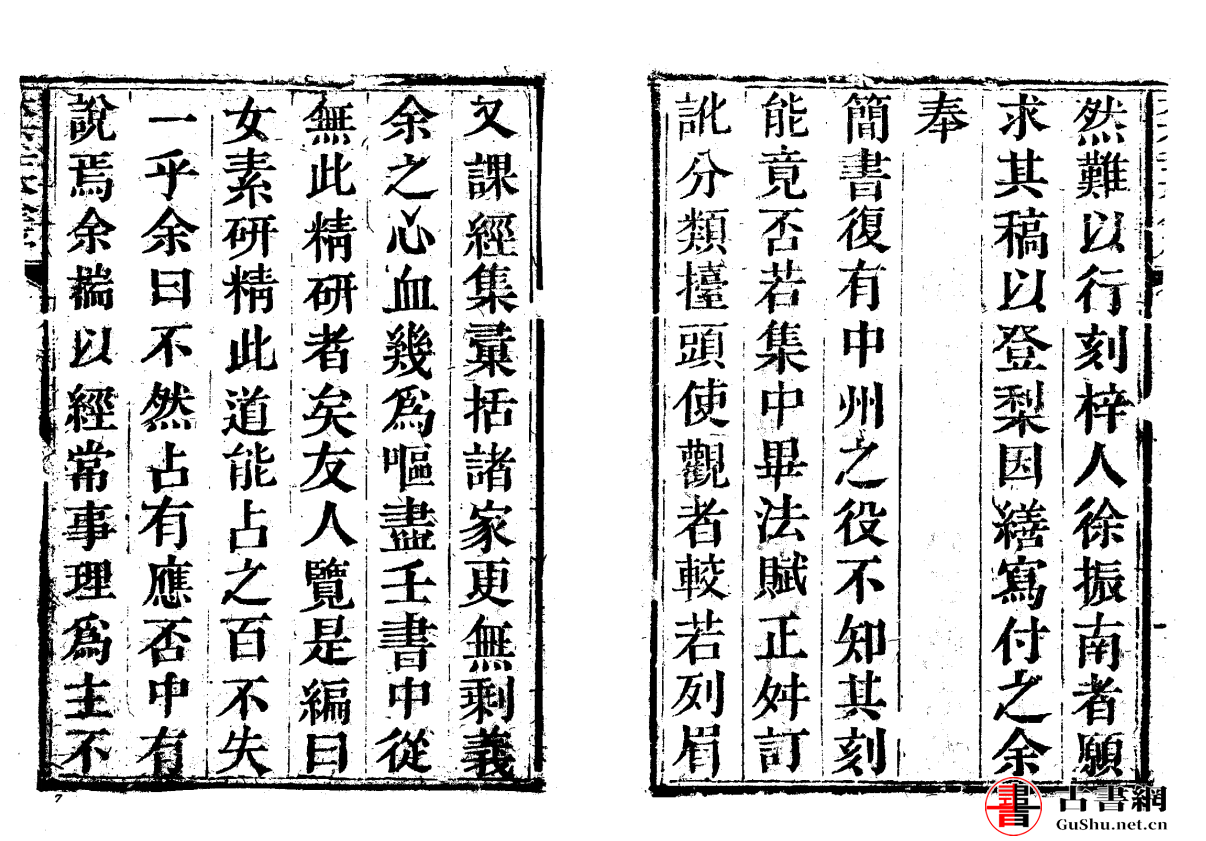 然難以行刻梓人徐振南者願
求其稿以登梨因繕寫付之余
奉
簡書復有中州之役不知其刻
能竟否若集中畢法賦正舛訂
訛分類擡頭使觀者較若列眉
又課經集彙括諸家更無剩義
余之心血幾為嘔盡壬書中從
無此精研者矣友人覽是編曰
女素研精此道能占之百不失
一乎余曰不然占有應否中有
說焉余揣以經常事理為主不
7
書 古書網
GuShu.net.cn